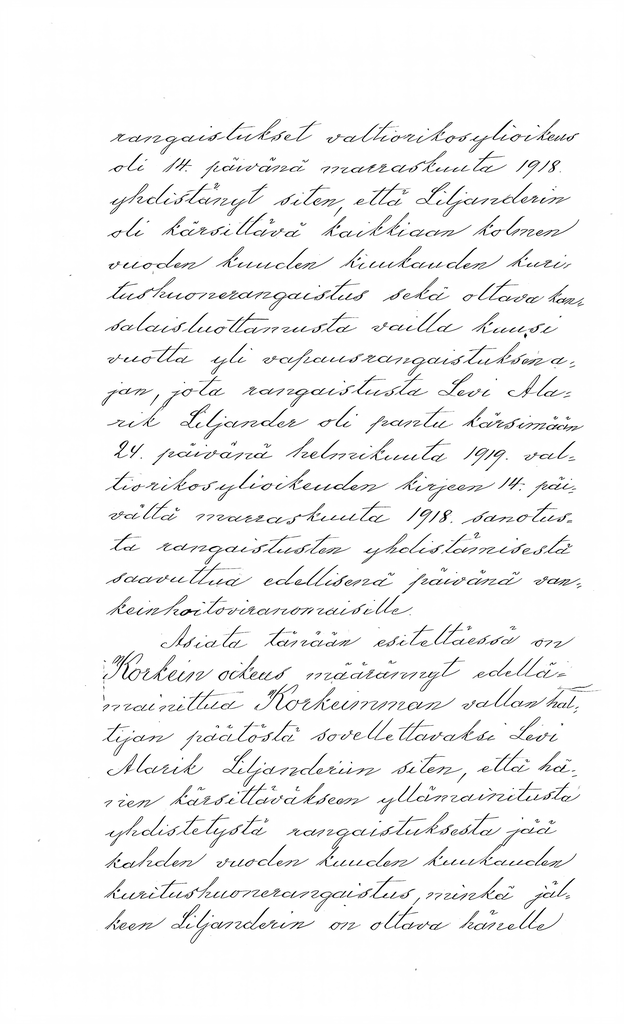 rangaistukset valtiorikosylioikeus
oli 14. päivänä marraskuuta 1918.
yhdistänyt siten, että Liljanderin
oli kärsittävä kaikkiaan kolmen
vuoden kuuden kuukauden kuri-
tushuonerangaistus sekä oltava kan-
salaisluottamusta vailla kuusi
vuotta yli vapausrangaistuksen a-
jan, jota rangaistusta Levi Ala-
rik Liljander oli pantu kärsimään
24. päivänä helmikuuta 1919. val-
tiorikosylioikeuden kirjeen 14. päi-
vältä marraskuuta 1918. sanotus-
ta rangaistusten yhdistämisestä
saavuttua edellisenä päivänä van-
keinhoitoviranomaisille.
Asiata tänään esiteltäessä on
Korkein oikeus määrännyt edellä-
mainittua Korkeimman vallan hal-
tijan päätöstä sovellettavaksi Levi
Alarik Liljanderiin siten, että hä-
nen kärsittäväkseen yllämainitusta
yhdistetystä rangaistuksesta jää
kahden vuoden kuuden kuukauden
kuritushuonerangaistus, minkä jäl-
keen Liljanderin on oltava hänelle